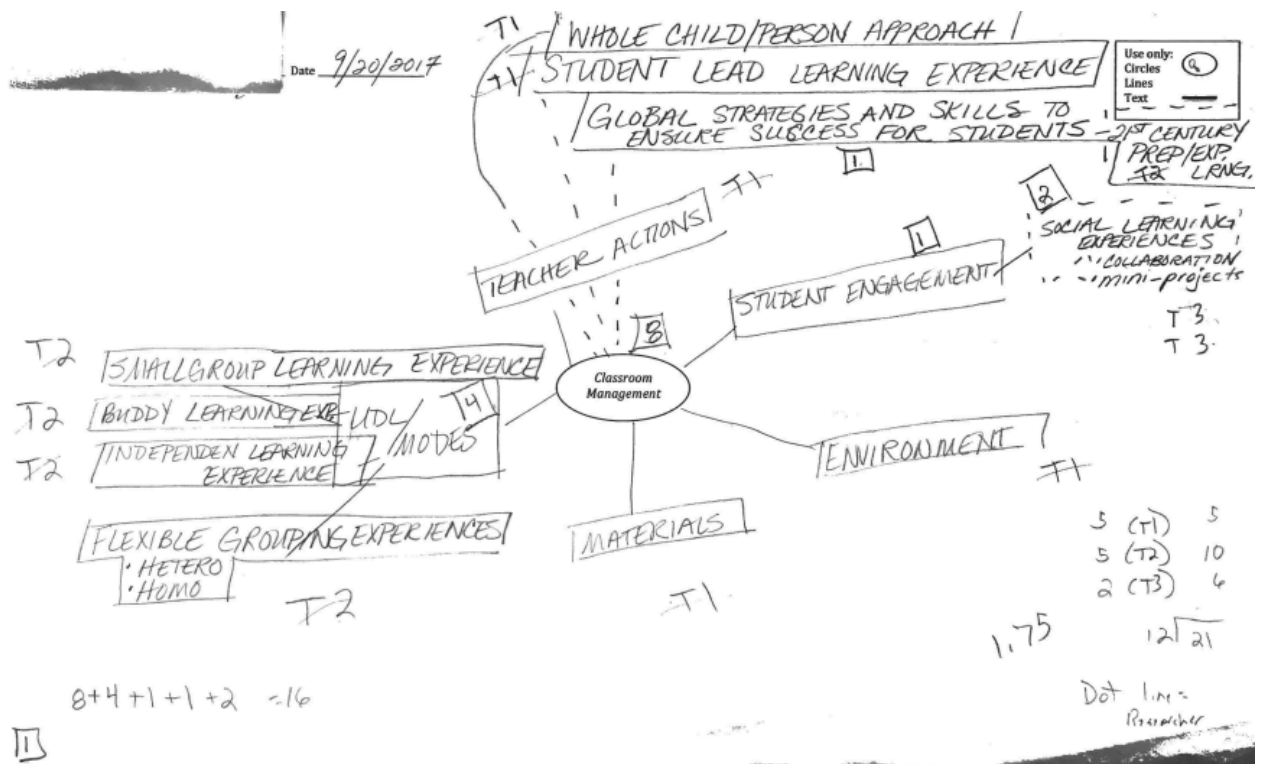 Date 9/20/2017
T1
WHOLE CHILD/PERSON APPROACH
T1
STUDENT LEAD LEARNING EXPERIENCE
GLOBAL STRATEGIES AND SKILLS TO
ENSURE SUCCESS FOR STUDENTS - 21ST CENTURY
PREP/EXP.
T2 LRNG.
Use only:
Circles
Lines
Text
1
TEACHER ACTIONS
T1
2
SOCIAL LEARNING
EXPERIENCES
COLLABORATION
mini-projects
T3
T3
1
STUDENT ENGAGEMENT
8
Classroom
Management
T2
SMALLGROUP LEARNING EXPERIENCE
T2
BUDDY LEARNING EXP.
T2
INDEPENDEN LEARNING
EXPERIENCE
UDL/
MODES
4
FLEXIBLE GROUPING EXPERIENCES
• HETERO
• HOMO
T2
MATERIALS
T1
ENVIRONMENT
T1
5 (T1) 5
5 (T2) 10
2 (T3) 6
1.75
12 21
8+4+1+1+2 =16
Dot line =
Researcher
1